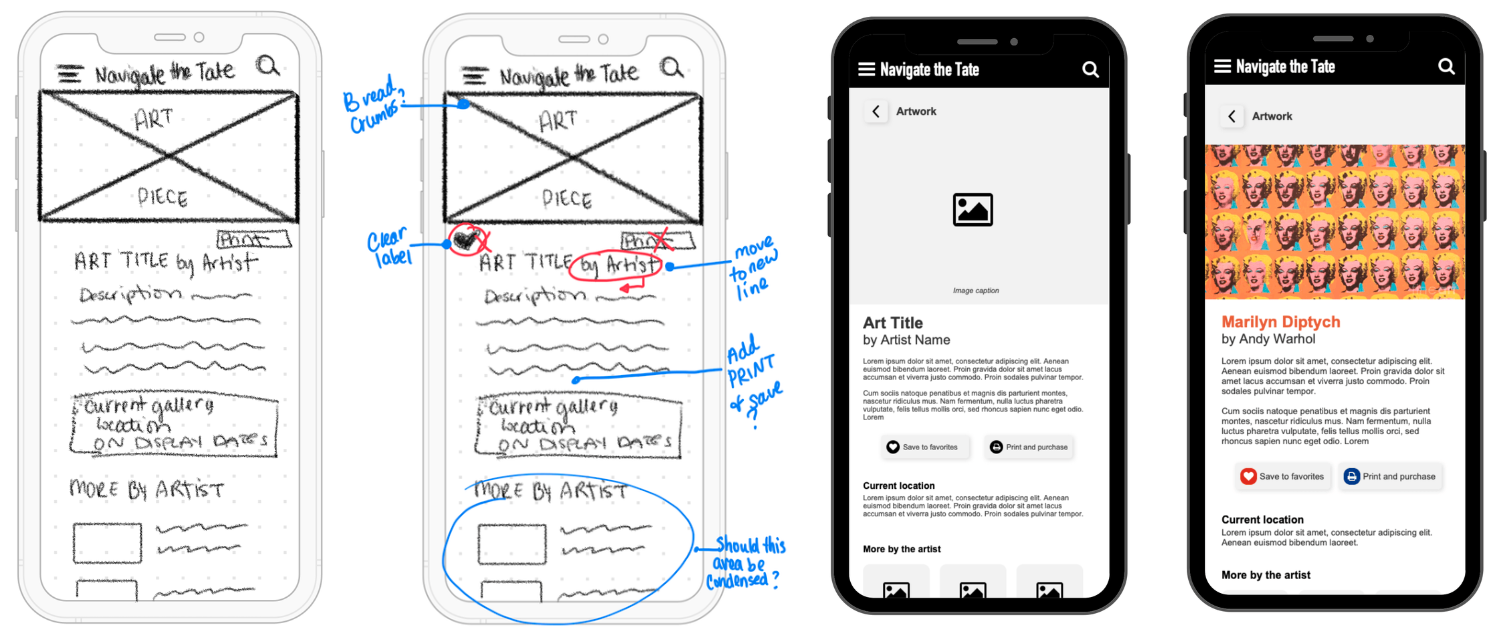 Navigate the Tate
ART
PIECE
Print
ART TITLE by Artist
Description
Current gallery
location
ON DISPLAY DATES
MORE BY ARTIST
Bread
Crumbs?
Clear
label
Navigate the Tate
ART
PIECE
Print
ART TITLE by Artist
Description
Current gallery
location
ON DISPLAY DATES
MORE BY ARTIST
move
to new
line
Add
PRINT
& save
?
Should this
area be
Condensed?
Navigate the Tate
Artwork
Image caption
Art Title
by Artist Name
Lorem ipsum dolor sit amet, consectetur adipiscing elit. Aenean
euismod bibendum laoreet. Proin gravida dolor sit amet lacus
accumsan et viverra justo commodo. Proin sodales pulvinar tempor.
Cum sociis natoque penatibus et magnis dis parturient montes,
nascetur ridiculus mus. Nam fermentum, nulla luctus pharetra
vulputate, felis tellus mollis orci, sed rhoncus sapien nunc eget odio.
Lorem
Save to favorites
Print and purchase
Current location
Lorem ipsum dolor sit amet, consectetur adipiscing elit. Aenean
euismod bibendum laoreet. Proin gravida dolor sit amet lacus
accumsan et viverra justo commodo. Proin sodales pulvinar tempor.
More by the artist
Navigate the Tate
Artwork
Marilyn Diptych
by Andy Warhol
Lorem ipsum dolor sit amet, consectetur adipiscing elit.
Aenean euismod bibendum laoreet. Proin gravida dolor sit
amet lacus accumsan et viverra justo commodo. Proin
sodales pulvinar tempor.
Cum sociis natoque penatibus et magnis dis parturient
montes, nascetur ridiculus mus. Nam fermentum, nulla
luctus pharetra vulputate, felis tellus mollis orci, sed
rhoncus sapien nunc eget odio. Lorem
Save to favorites
Print and purchase
Current location
Lorem ipsum dolor sit amet, consectetur adipiscing elit.
Aenean euismod bibendum laoreet.
More by the artist